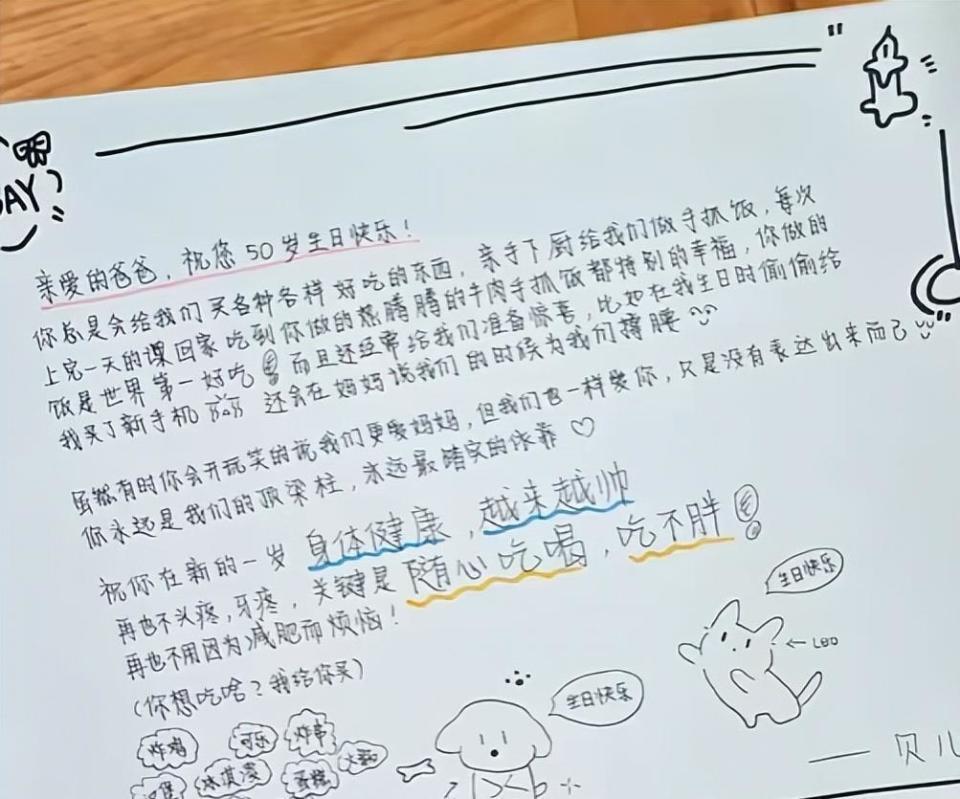 AY
亲爱的爸爸，祝您50岁生日快乐！
你总是会给我们买各种各样好吃的东西，亲手下厨给我们做手抓饭，每次
上完一天的课回家吃到你做的热腾腾的牛肉手抓饭都特别的幸福，你做的
饭是世界第一好吃 而且还经常给我们准备惊喜，比如在我生日时偷偷给
我买了新手机 还会在妈妈说我们的时候为我们撑腰
虽然有时你会开玩笑的说我们更爱妈妈，但我们也一样爱你，只是没有表达出来而已
你永远是我们的顶梁柱，永远最踏实的依靠♡
祝你在新的一岁 身体健康，越来越帅
再也不头疼，牙疼，关键是随心吃喝，吃不胖
再也不用因为减肥而烦恼！
（你想吃啥？我给你买）
生日快乐
LEO
生日快乐
炸鸡 可乐 炸串
汉堡 冰淇淋 蛋糕 火锅
—— 贝儿